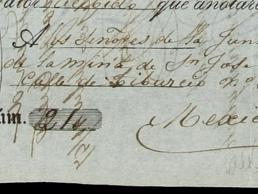 que anotara
A los Señores de la Jun
de la mina de Sn. José
Calle de Tiburcio no.
úm. 214
Mexic